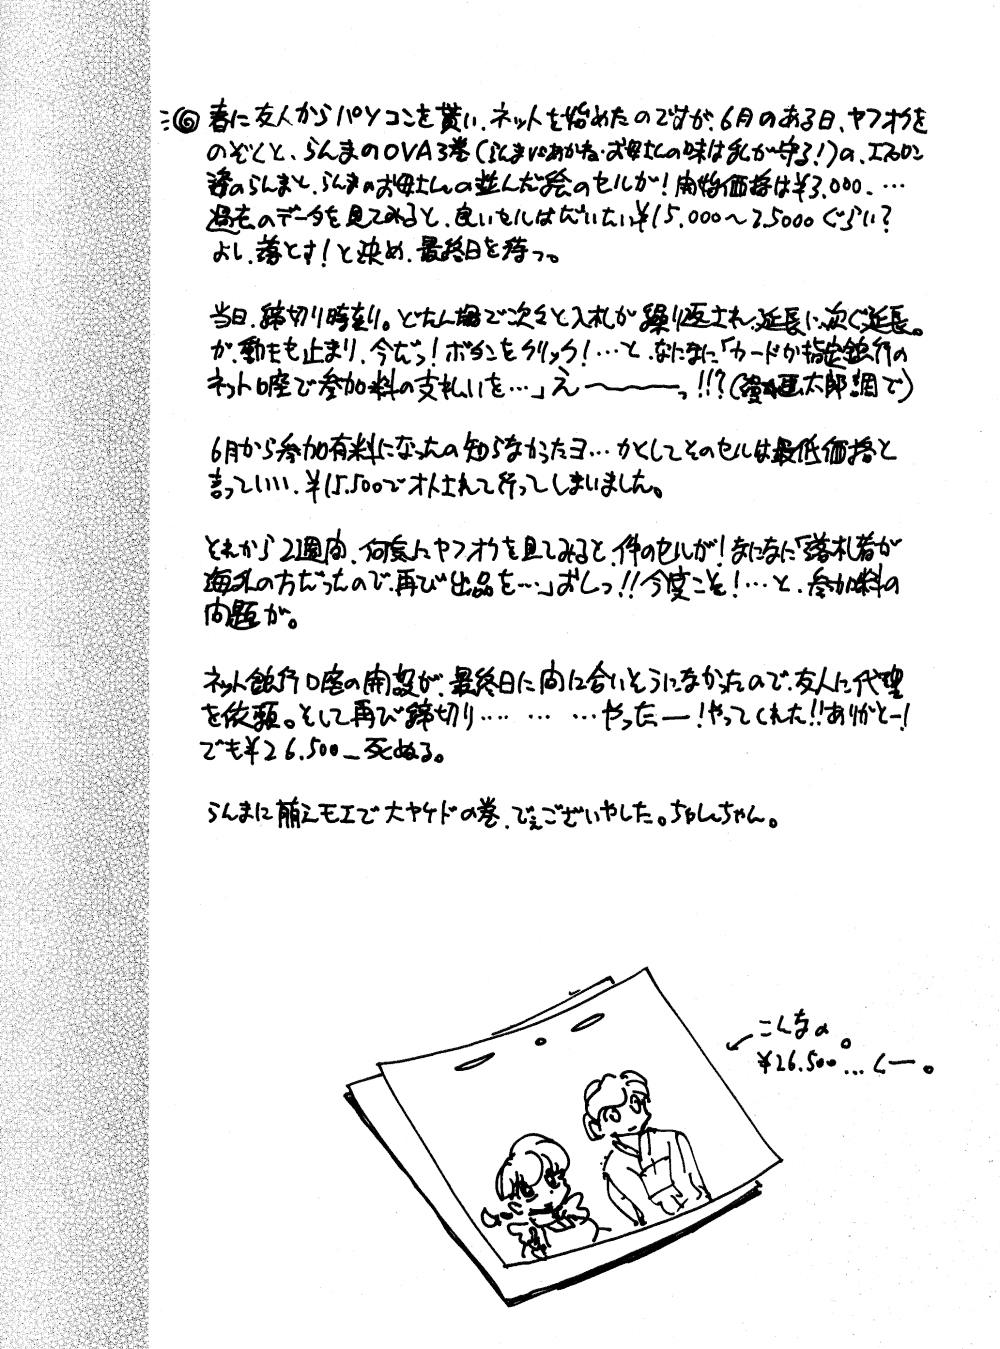 春に友人からパソコンを貰い、ネットを始めたのですが、6月のある日、ヤフオクを
のぞくと、らんまのOVA3巻(らんまvsあかね・お母さんの味は私が守る!)の、エプロン
姿のらんまと、らんまのお母さんの並んだ絵のセルが!開始価格は¥3.000、…
過去のデータを見てみると、良いセルはだいたい¥15.000〜25000ぐらい?
よし、落とす!と決め、最終日を待つ。
当日、締切り時刻。どたん場で次々と入札が繰り返され、延長に次ぐ延長。
が、動きも止まり、今だっ!ボタンをクリック!…と、なになに「カードか指定銀行の
ネット口座で参加料の支払いを…」え〜〜〜っ!!?(漫☆画太郎調で)
6月から参加有料になったの知らなかったヨ…かくしてそのセルは最低価格と
言っていい、¥15.500でオトされて行ってしまいました。
それから2週間、何気にヤフオクを見てみると、件のセルが!なになに「落札者が
海外の方だったので、再び出品を…」よしっ!!今度こそ!…と、参加料の
問題が。
ネット銀行口座の開設が、最終日に間に合いそうになかったので、友人に代理
を依頼。そして再び締切り… … …やったー!やってくれた!!ありがとー!
でも¥26.500_死ぬる。
らんまに萌えモエで大ヤケドの巻、でぇございやした。ちゃんちゃん。
こんなの。
¥26.500…くー。